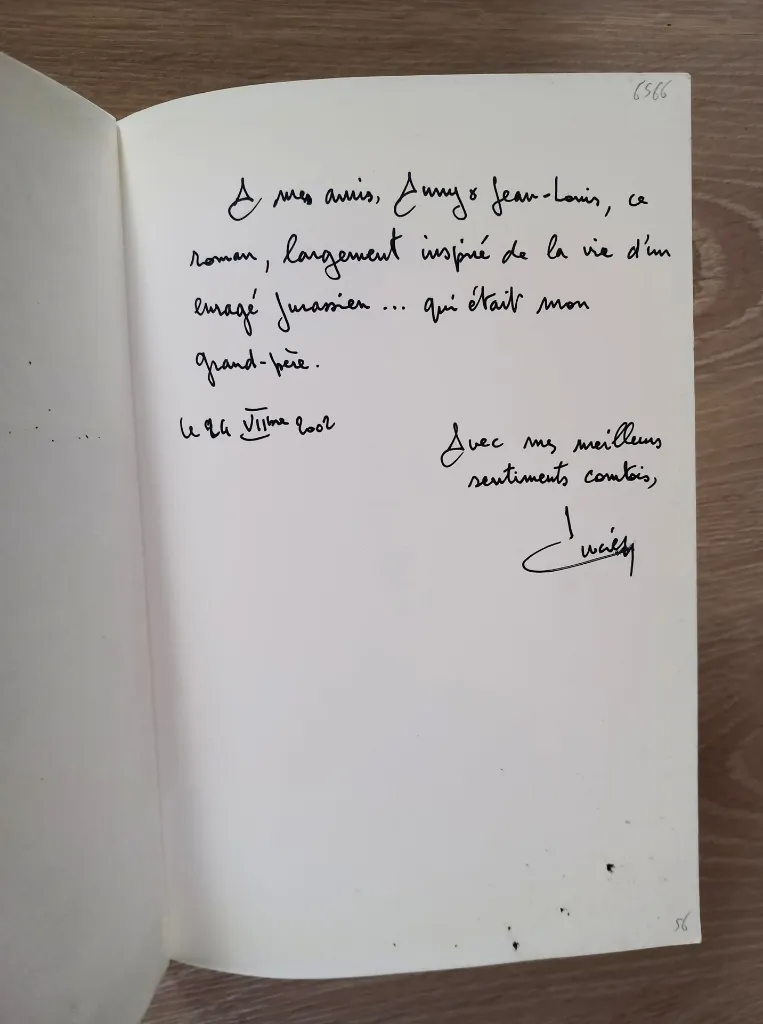 6566
A mes amis, Anny & Jean-Louis, ce
roman, largement inspiré de la vie d'un
enragé Jurassien... qui était mon
grand-père.
le 24 VIIème 2002
Avec mes meilleurs
sentiments comtois,
56